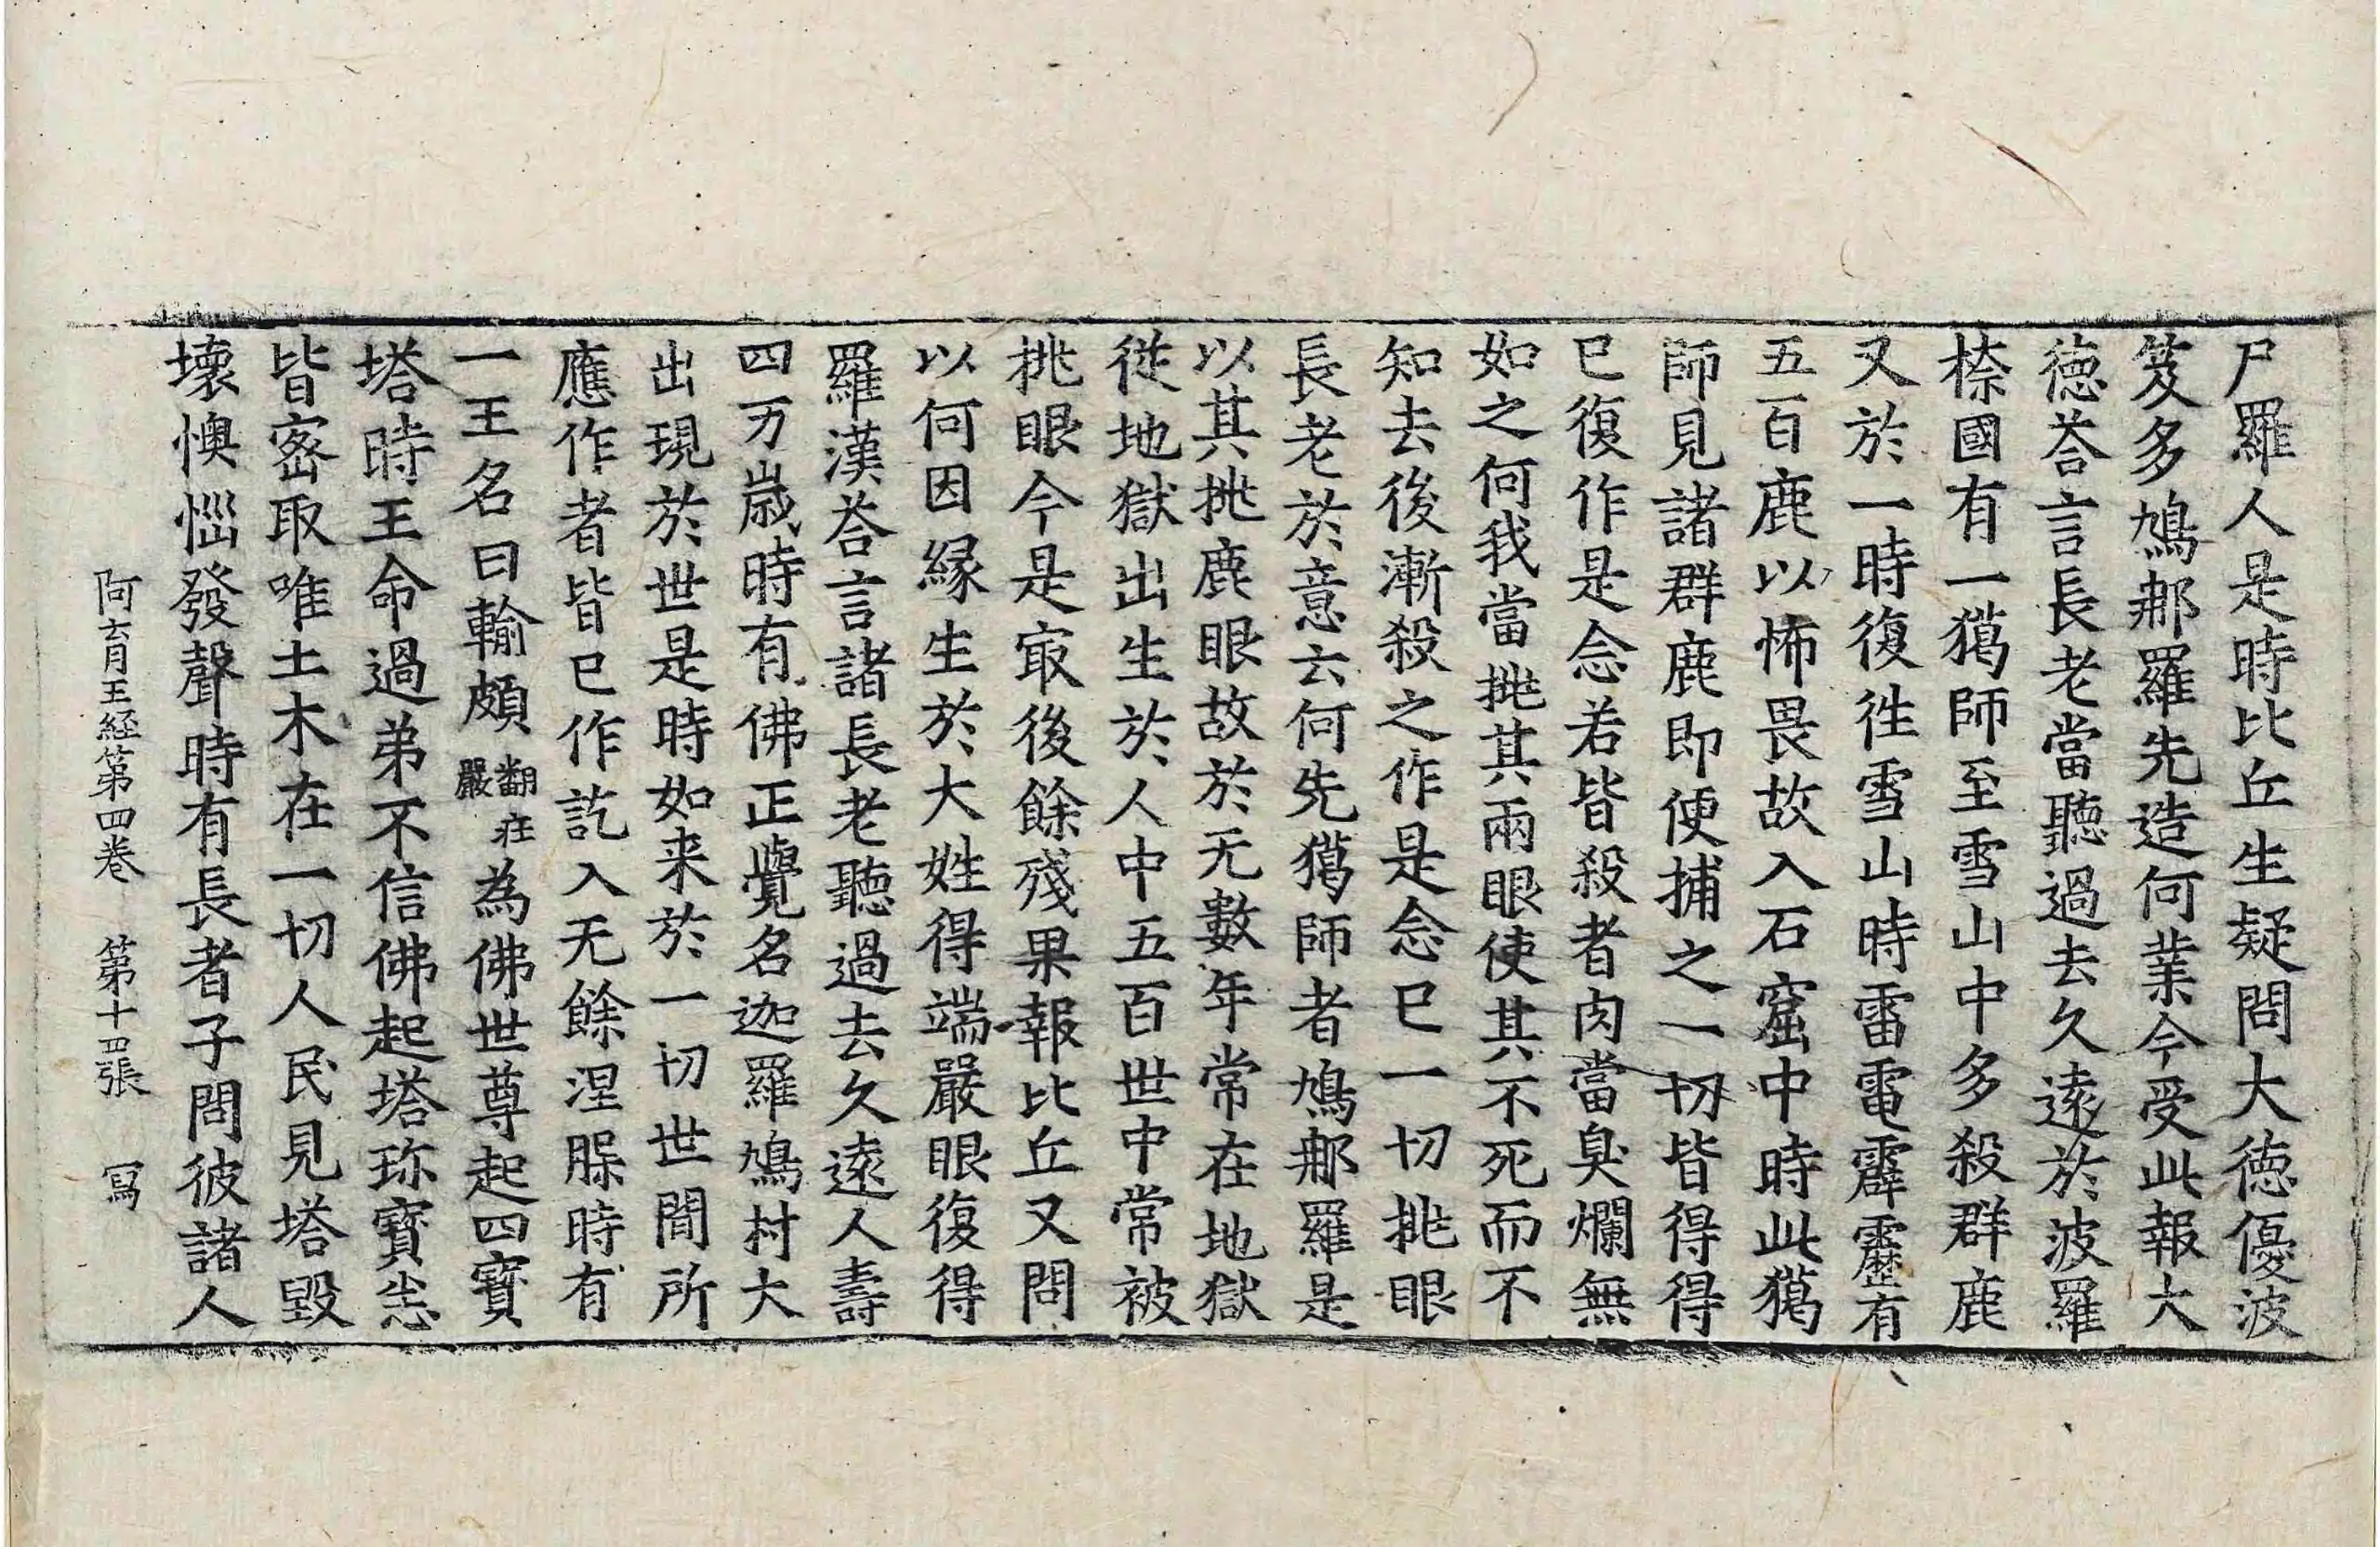 尸羅人是時比丘生疑問大徳優波
笈多鳩那羅先造何業今受此報大
徳荅言長老當聽過去久遠於波羅
㮈國有一獦師至雪山中多殺群鹿
又於一時復徃雪山時雷電霹靂有
五百鹿以怖畏故入石窟中時此獦
師見諸群鹿即便捕之一切皆得得
已復作是念若皆殺者肉當臭爛無
如之何我當挑其兩眼使其不死而不
知去後漸殺之作是念已一切挑眼
長老於意云何先獦師者鳩那羅是
以其挑鹿眼故於无數年常在地獄
從地獄出生於人中五百世中常被
挑眼今是㝡後餘殘果報比丘又問
以何因緣生於大姓得端嚴眼復得
羅漢荅言諸長老聽過去久遠人壽
四万歲時有佛正覺名迦羅鳩村大
出現於世是時如来於一切世間所
應作者皆已作訖入无餘涅脲時有
一王名曰輸頗翻㽵嚴為佛世尊起四寶
塔時王命過弟不信佛起塔珎寳㤀
皆宻取唯土木在一切人民見塔毀
壞懊惱發聲時有長者子問彼諸人
阿育王経第四巻 第十四張 寫